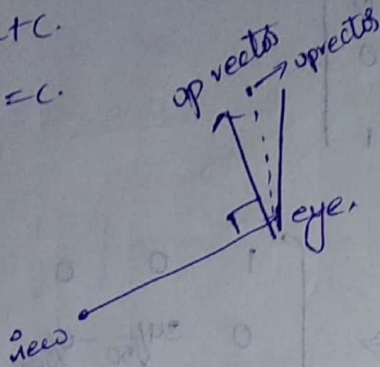 +C.
=C.
up vector
upvector
eye.
view